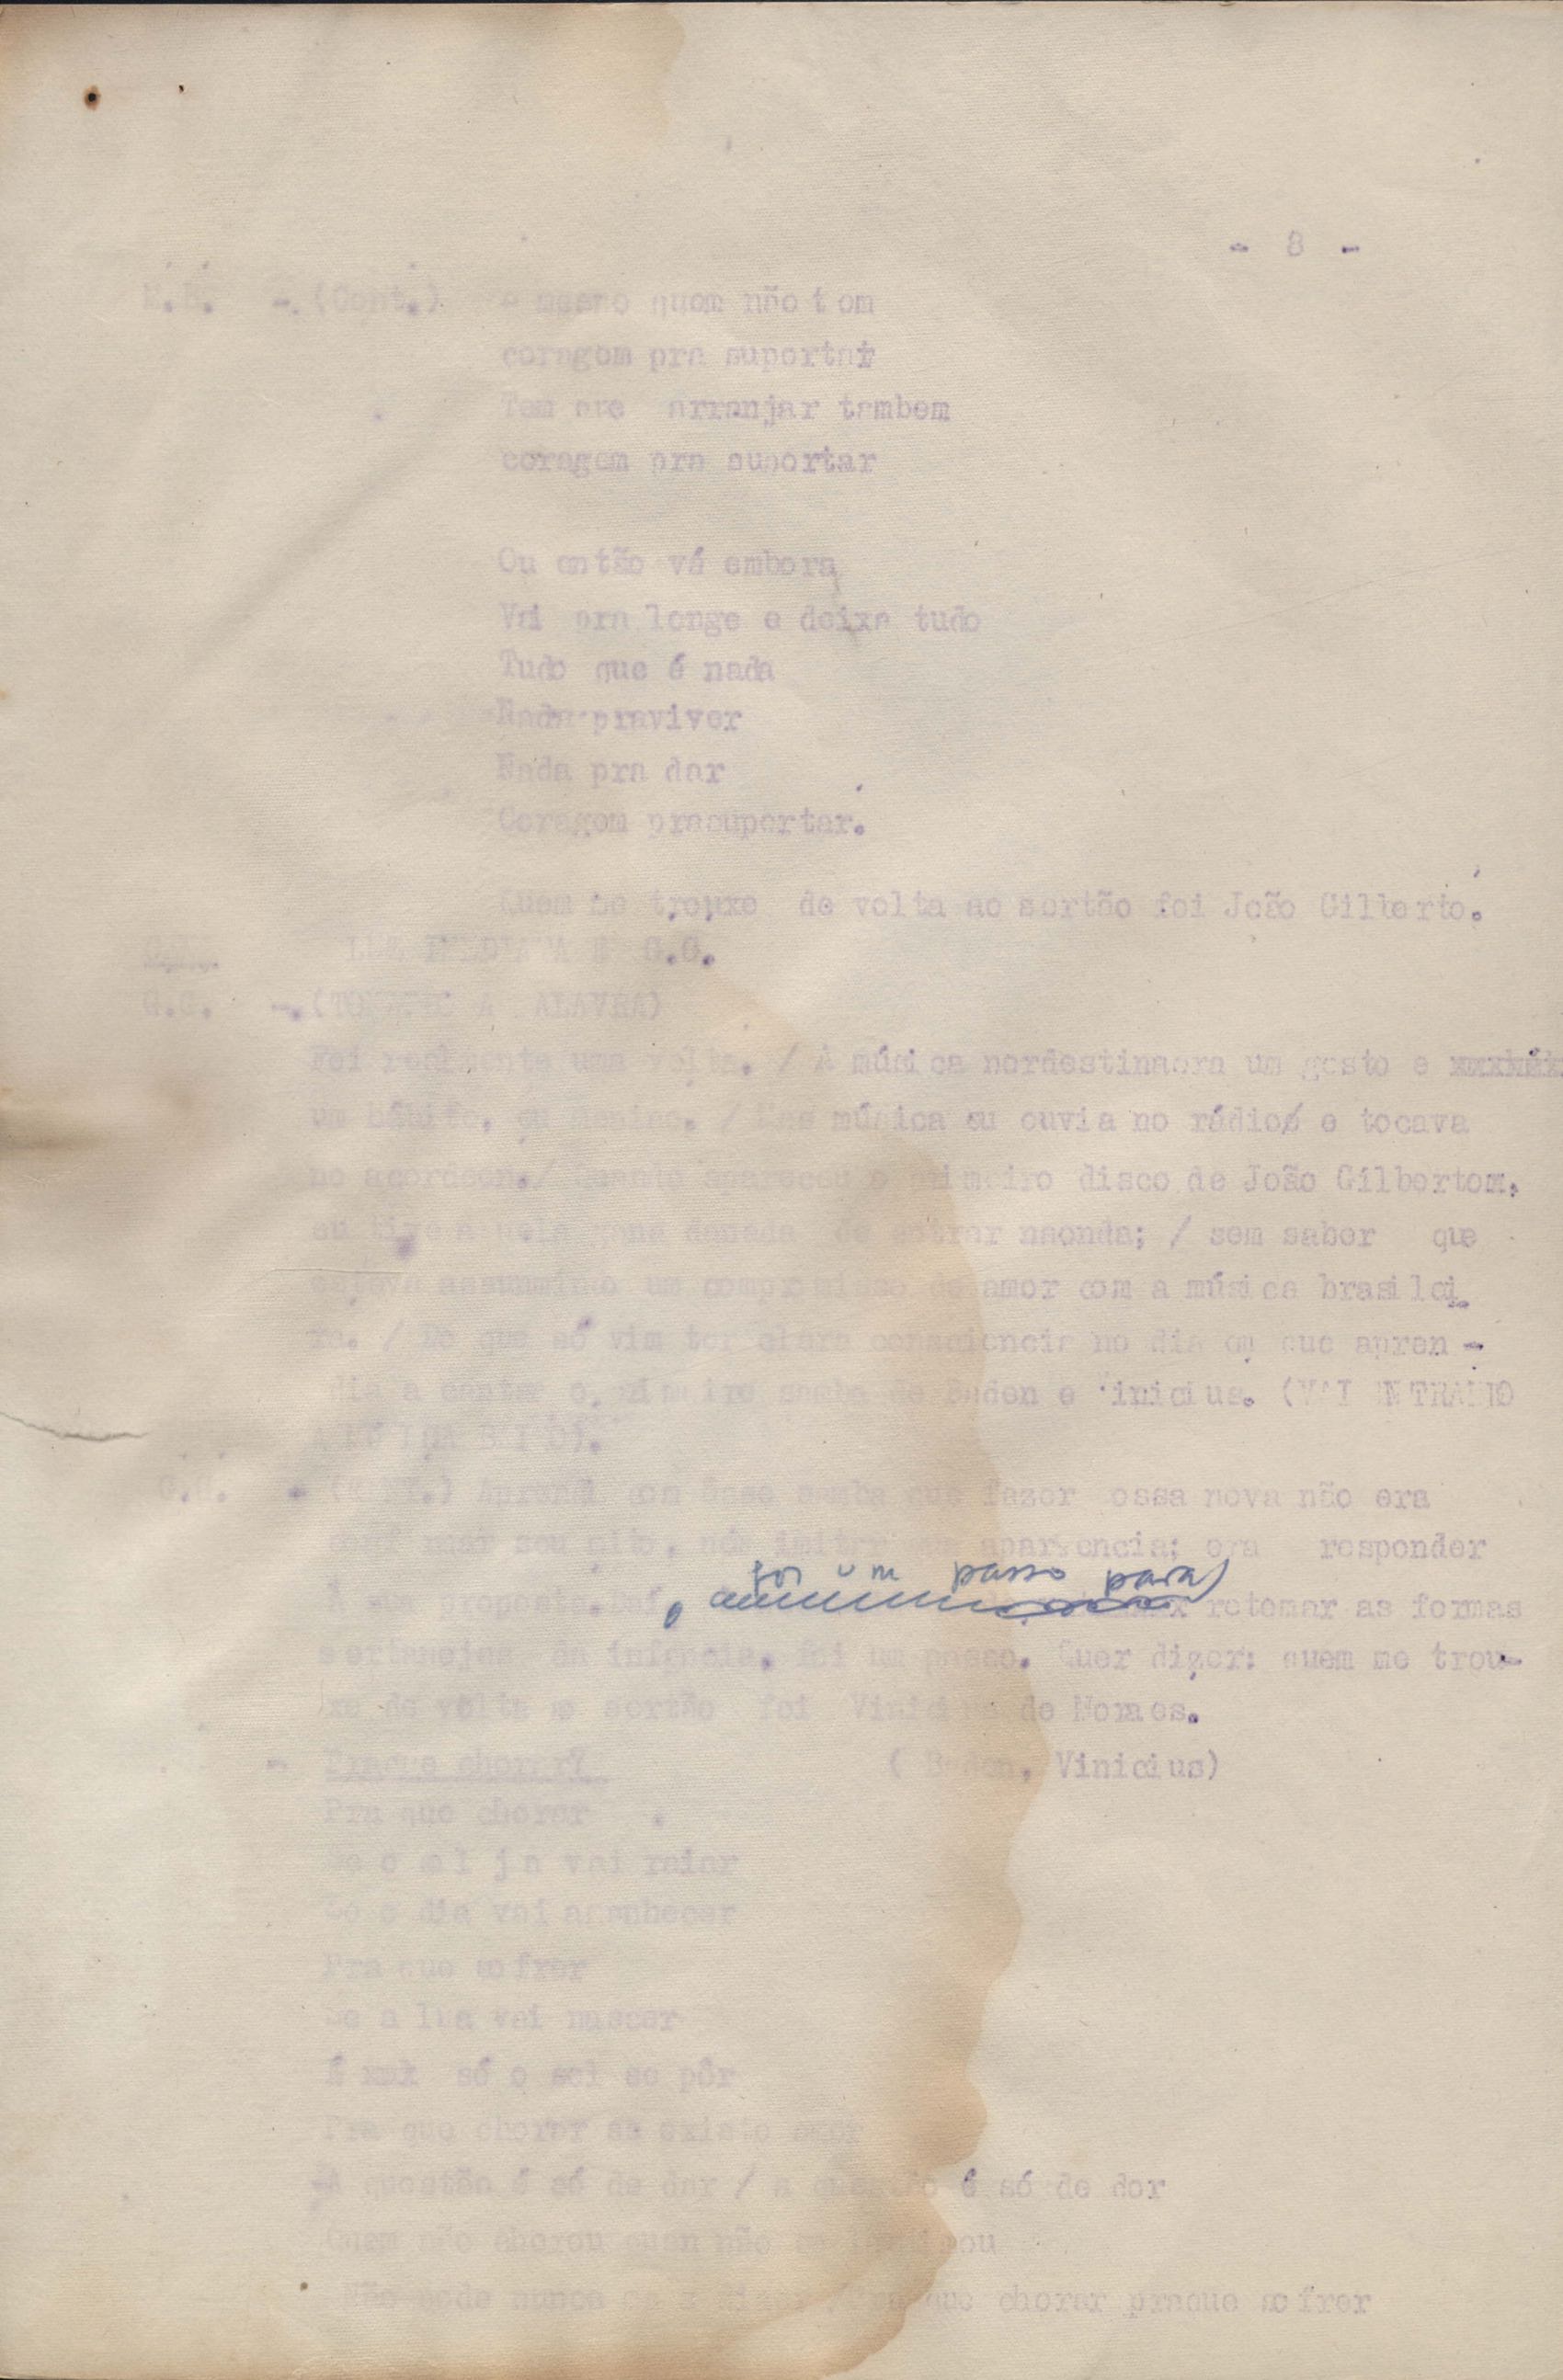 - 8 -
-. (Cont.) e mesmo quem não tem
coragem pra suportar
Tem que arranjar tambem
coragem pra suportar
Ou então vá embora
Vai pra longe e deixa tudo
Tudo que é nada
Nada praviver
Nada pra dar
Coragem prasuportar.
Quem me trouxe de volta ao sertão foi João Gilberto.
G.G.
G.G. -. (TOMANDO A PALAVRA)
Foi realmente uma volta. / A música nordestinaera um gosto e
um hábito, eu menino. / Uma música eu ouvia no rádio e tocava
no acordeon./ Quando apareceu o primeiro disco de João Gilbertom,
eu tive aquela gana danada de entrar naonda; / sem saber que
estava assumindo um compromisso de amor com a música brasilei
ra. / De que só vim ter clara consciencia no dia em que apren -
dia a cantar o primeiro samba de Baden e Vinicius. (VAI ENTRANDO
A MÚSICA
G.G. - (CONT.) Aprendi com êsse samba que fazer ossa nova não era
seu mito, imitar sua aparencia; era responder
À sua proposta. Daí, foi um passo para retomar as formas
sertanejas da infancia, foi um passo. Quer dizer: quem me trou-
xe de volta ao sertão foi Vinicius de Moraes.
- Praque chorar? ( Baden, Vinicius)
Pra que chorar
Se o sol ja vai raiar
Se o dia vai amanhecer
Pra que sofrer
Se a lua vai nascer
É só o sol se pôr
Pra que chorar se existe amor
A questão é só de dar / a questão é só de dor
Quem não chorou quem não se lastimou
Não pode nunca mais dizer. Pra que chorar praque sofrer